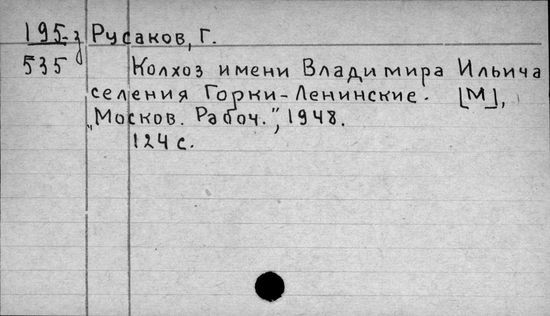 195-з Русаков, Г.
535 Колхоз имени Владимира Ильича
селения Горки-Ленинские. [М],
„Москов. Рабоч.”, 1948.
124 с.